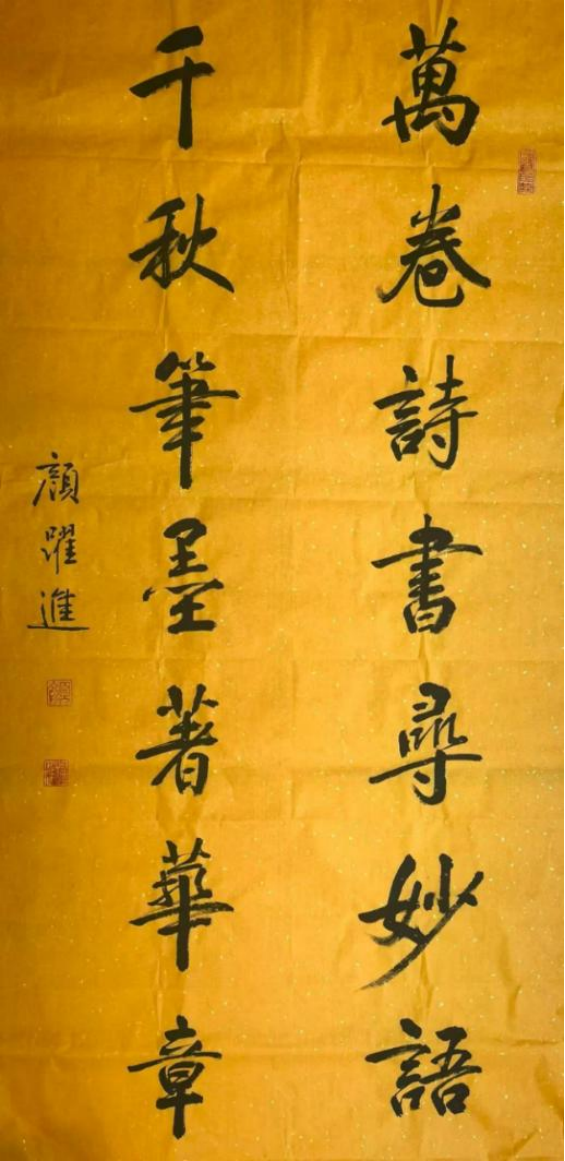 萬卷詩書尋妙語
千秋筆墨著華章
顏躍進